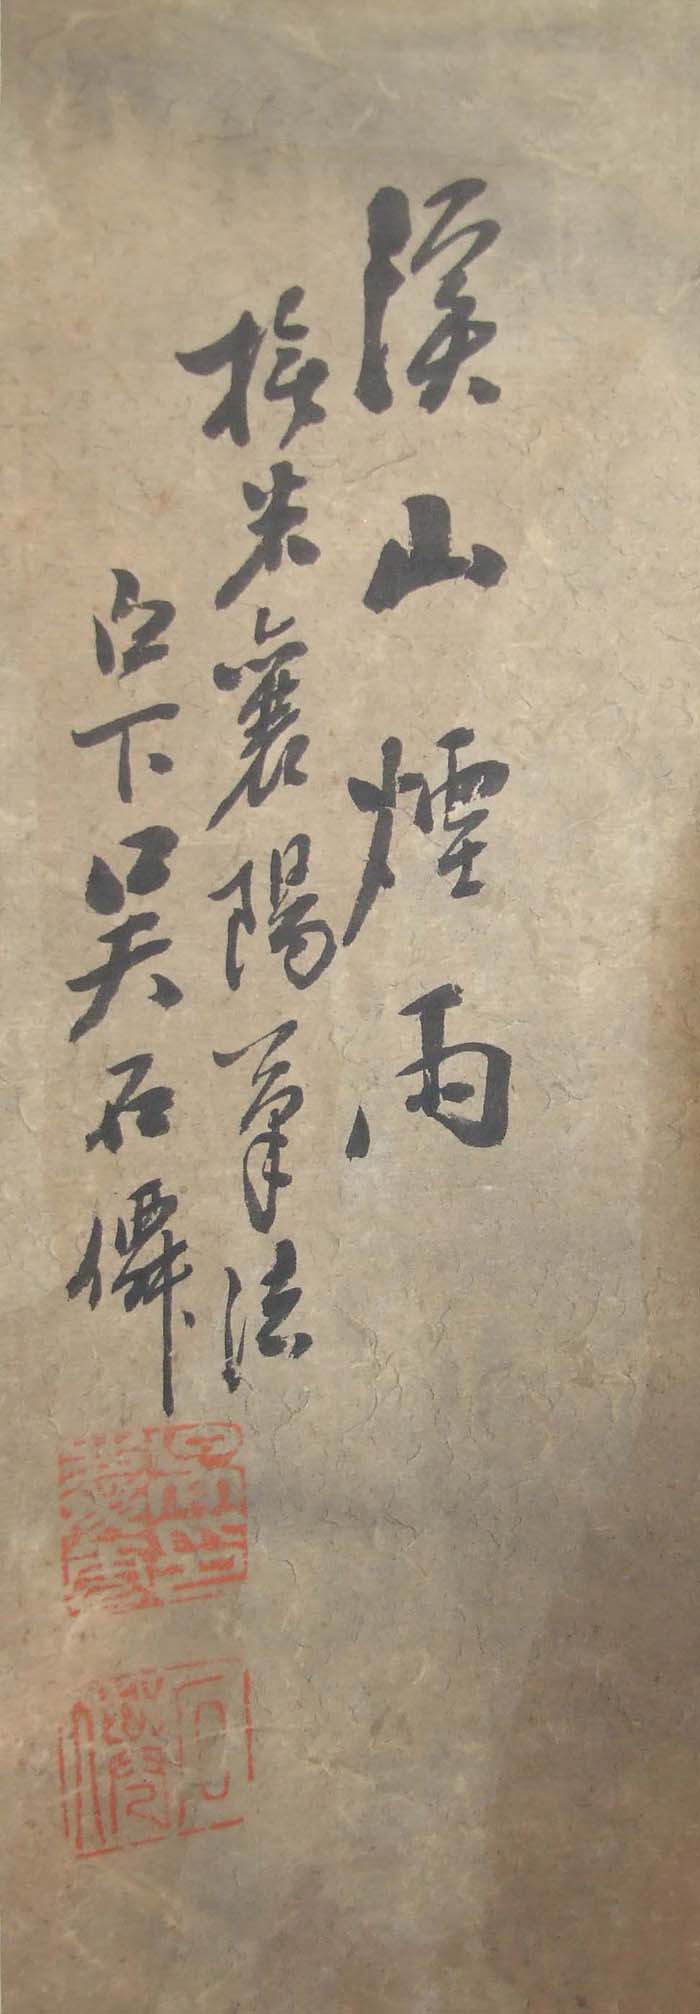 溪山煙雨
橅米襄陽筆法
白下吳石僊
石僊